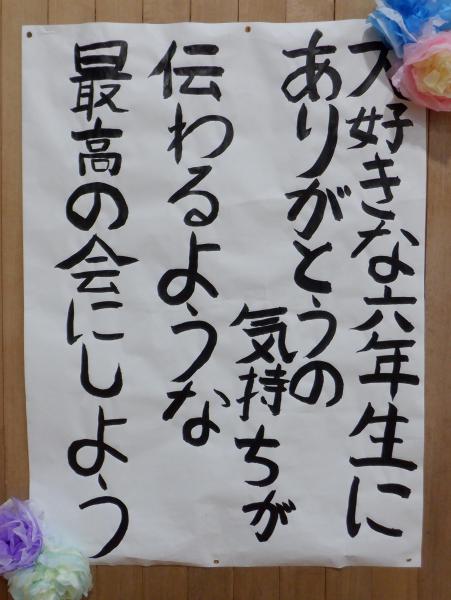 大好きな六年生に
ありがとうの
気持ちが
伝わるような
最高の会にしよう